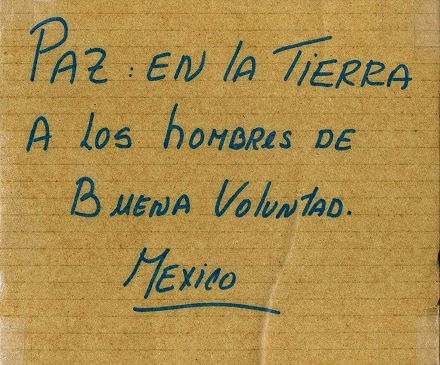 PAZ: EN la TIERRA
A los hombres DE
BUENA VoluntAD.
MExico